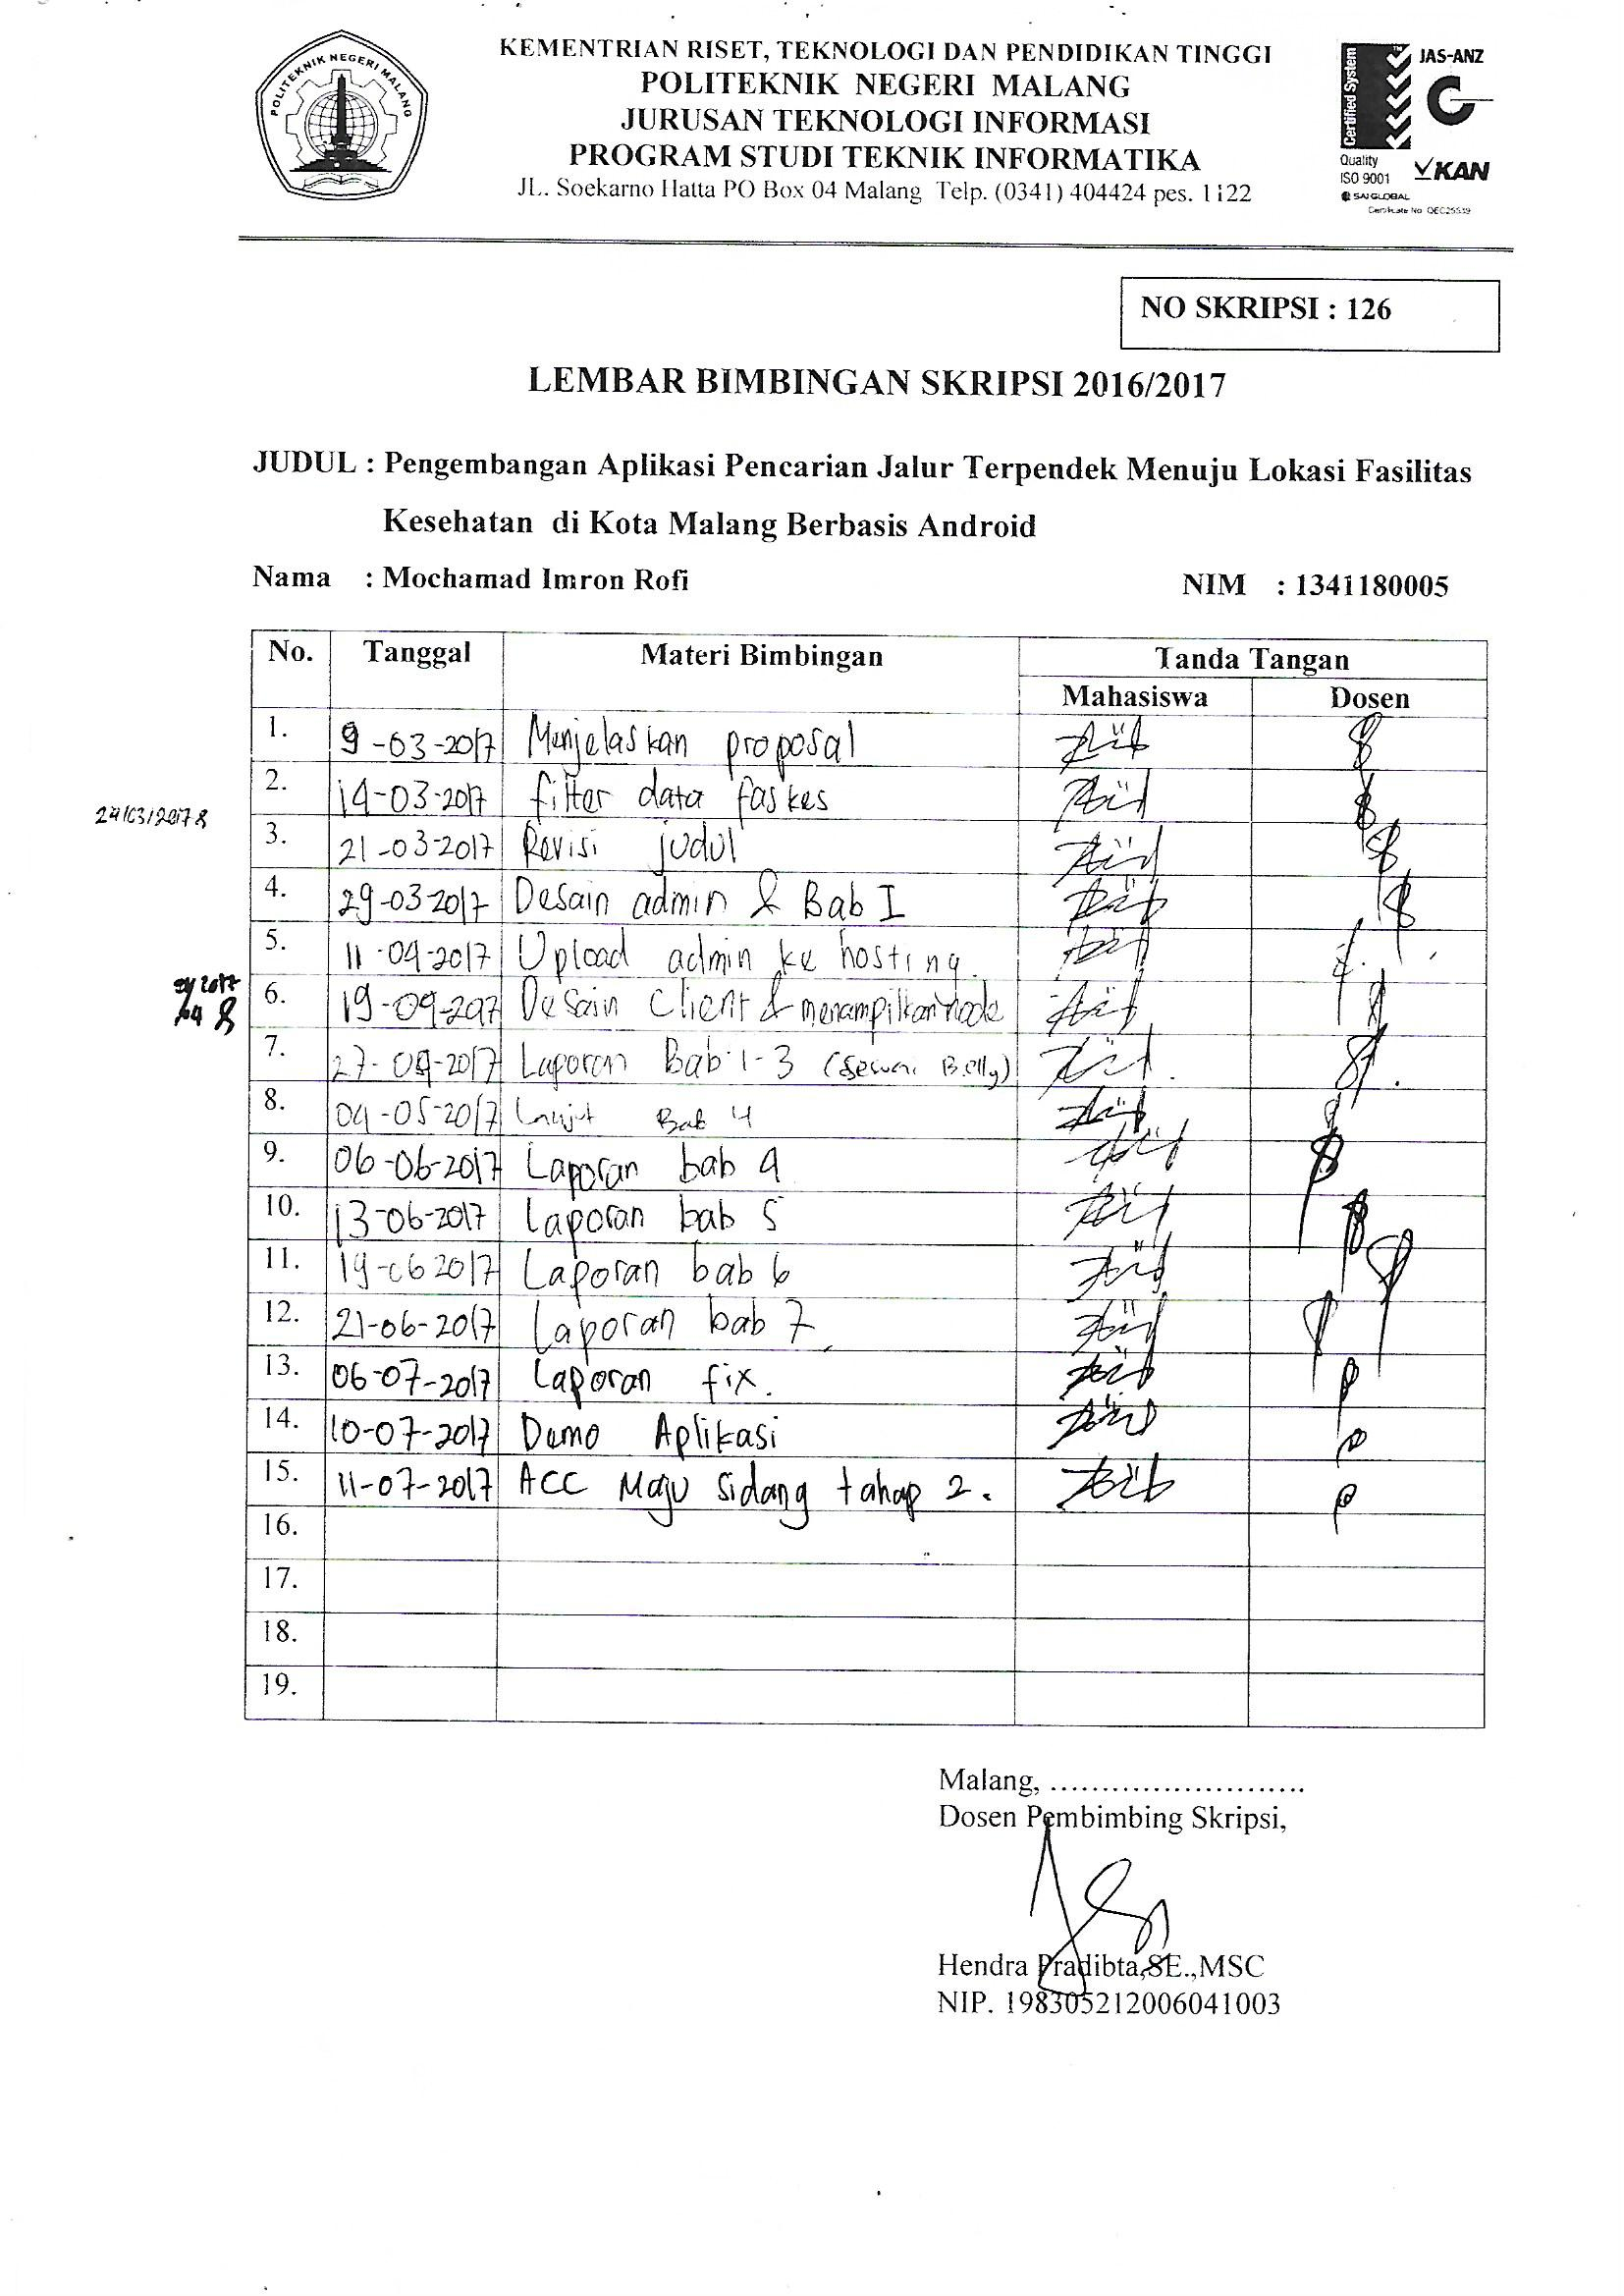 POLITEKNIK NEGERI MALANG
KEMENTRIAN RISET, TEKNOLOGI DAN PENDIDIKAN TINGGI
POLITEKNIK NEGERI MALANG
JURUSAN TEKNOLOGI INFORMASI
PROGRAM STUDI TEKNIK INFORMATIKA
JL. Soekarno Hatta PO Box 04 Malang Telp. (0341) 404424 pes. 1122
Certified System
JAS-ANZ
Quality
ISO 9001
KAN
SAI GLOBAL
Certificate No QEC25539
NO SKRIPSI : 126
LEMBAR BIMBINGAN SKRIPSI 2016/2017
JUDUL : Pengembangan Aplikasi Pencarian Jalur Terpendek Menuju Lokasi Fasilitas
Kesehatan di Kota Malang Berbasis Android
Nama : Mochamad Imron Rofi NIM : 1341180005
No. Tanggal Materi Bimbingan Tanda Tangan
Mahasiswa Dosen
1. 9-03-2017 Menjelaskan proposal
2. 14-03-2017 filter data faskes
24/03/2017
3. 21-03-2017 Revisi judul
4. 29-03-2017 Desain admin & Bab I
5. 11-04-2017 Upload admin ke hosting.
6. 19-04-2017 Desain Client & menampilkan node
7. 27-04-2017 Laporan Bab 1-3
8. 04-05-2017 Lanjut Bab 4
9. 06-06-2017 Laporan bab 4
10. 13-06-2017 Laporan bab 5
11. 19-06 2017 Laporan bab 6
12. 21-06-2017 Laporan bab 7
13. 06-07-2017 Laporan fix.
14. 10-07-2017 Demo Aplikasi
15. 11-07-2017 ACC Maju sidang tahap 2.
16.
17.
18.
19.
Malang, .........................
Dosen Pembimbing Skripsi,
Hendra Pradibta,SE.,MSC
NIP. 198305212006041003